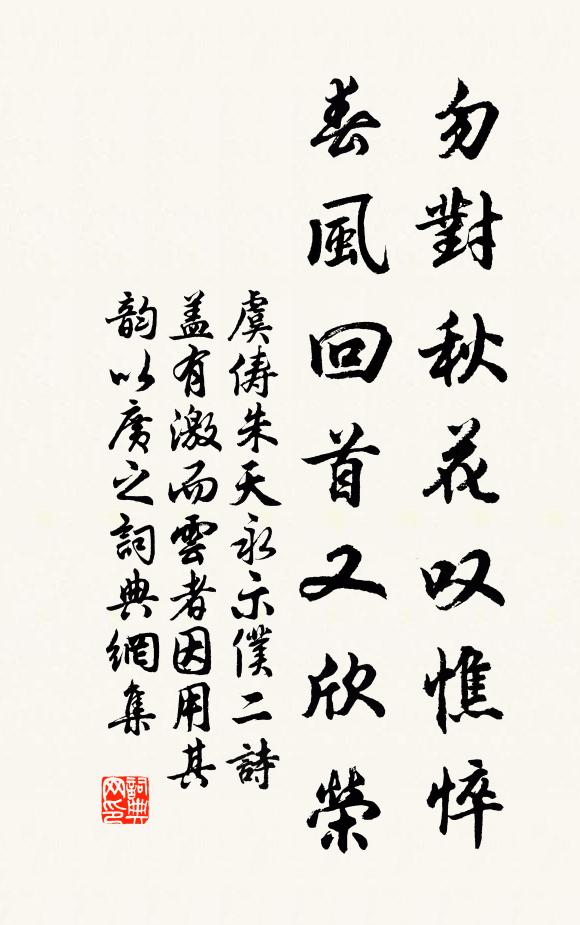 勿對秋花叹憔悴
春風回首又欣榮
虞俦朱天永示僕二詩
盖有激而雲者因用其
韵以廣之詞典網集
詞典网印